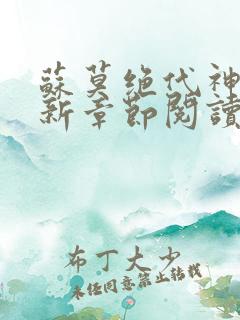 蘇莫绝代神
新章節閱讀
布丁大少
未经同意禁止转载